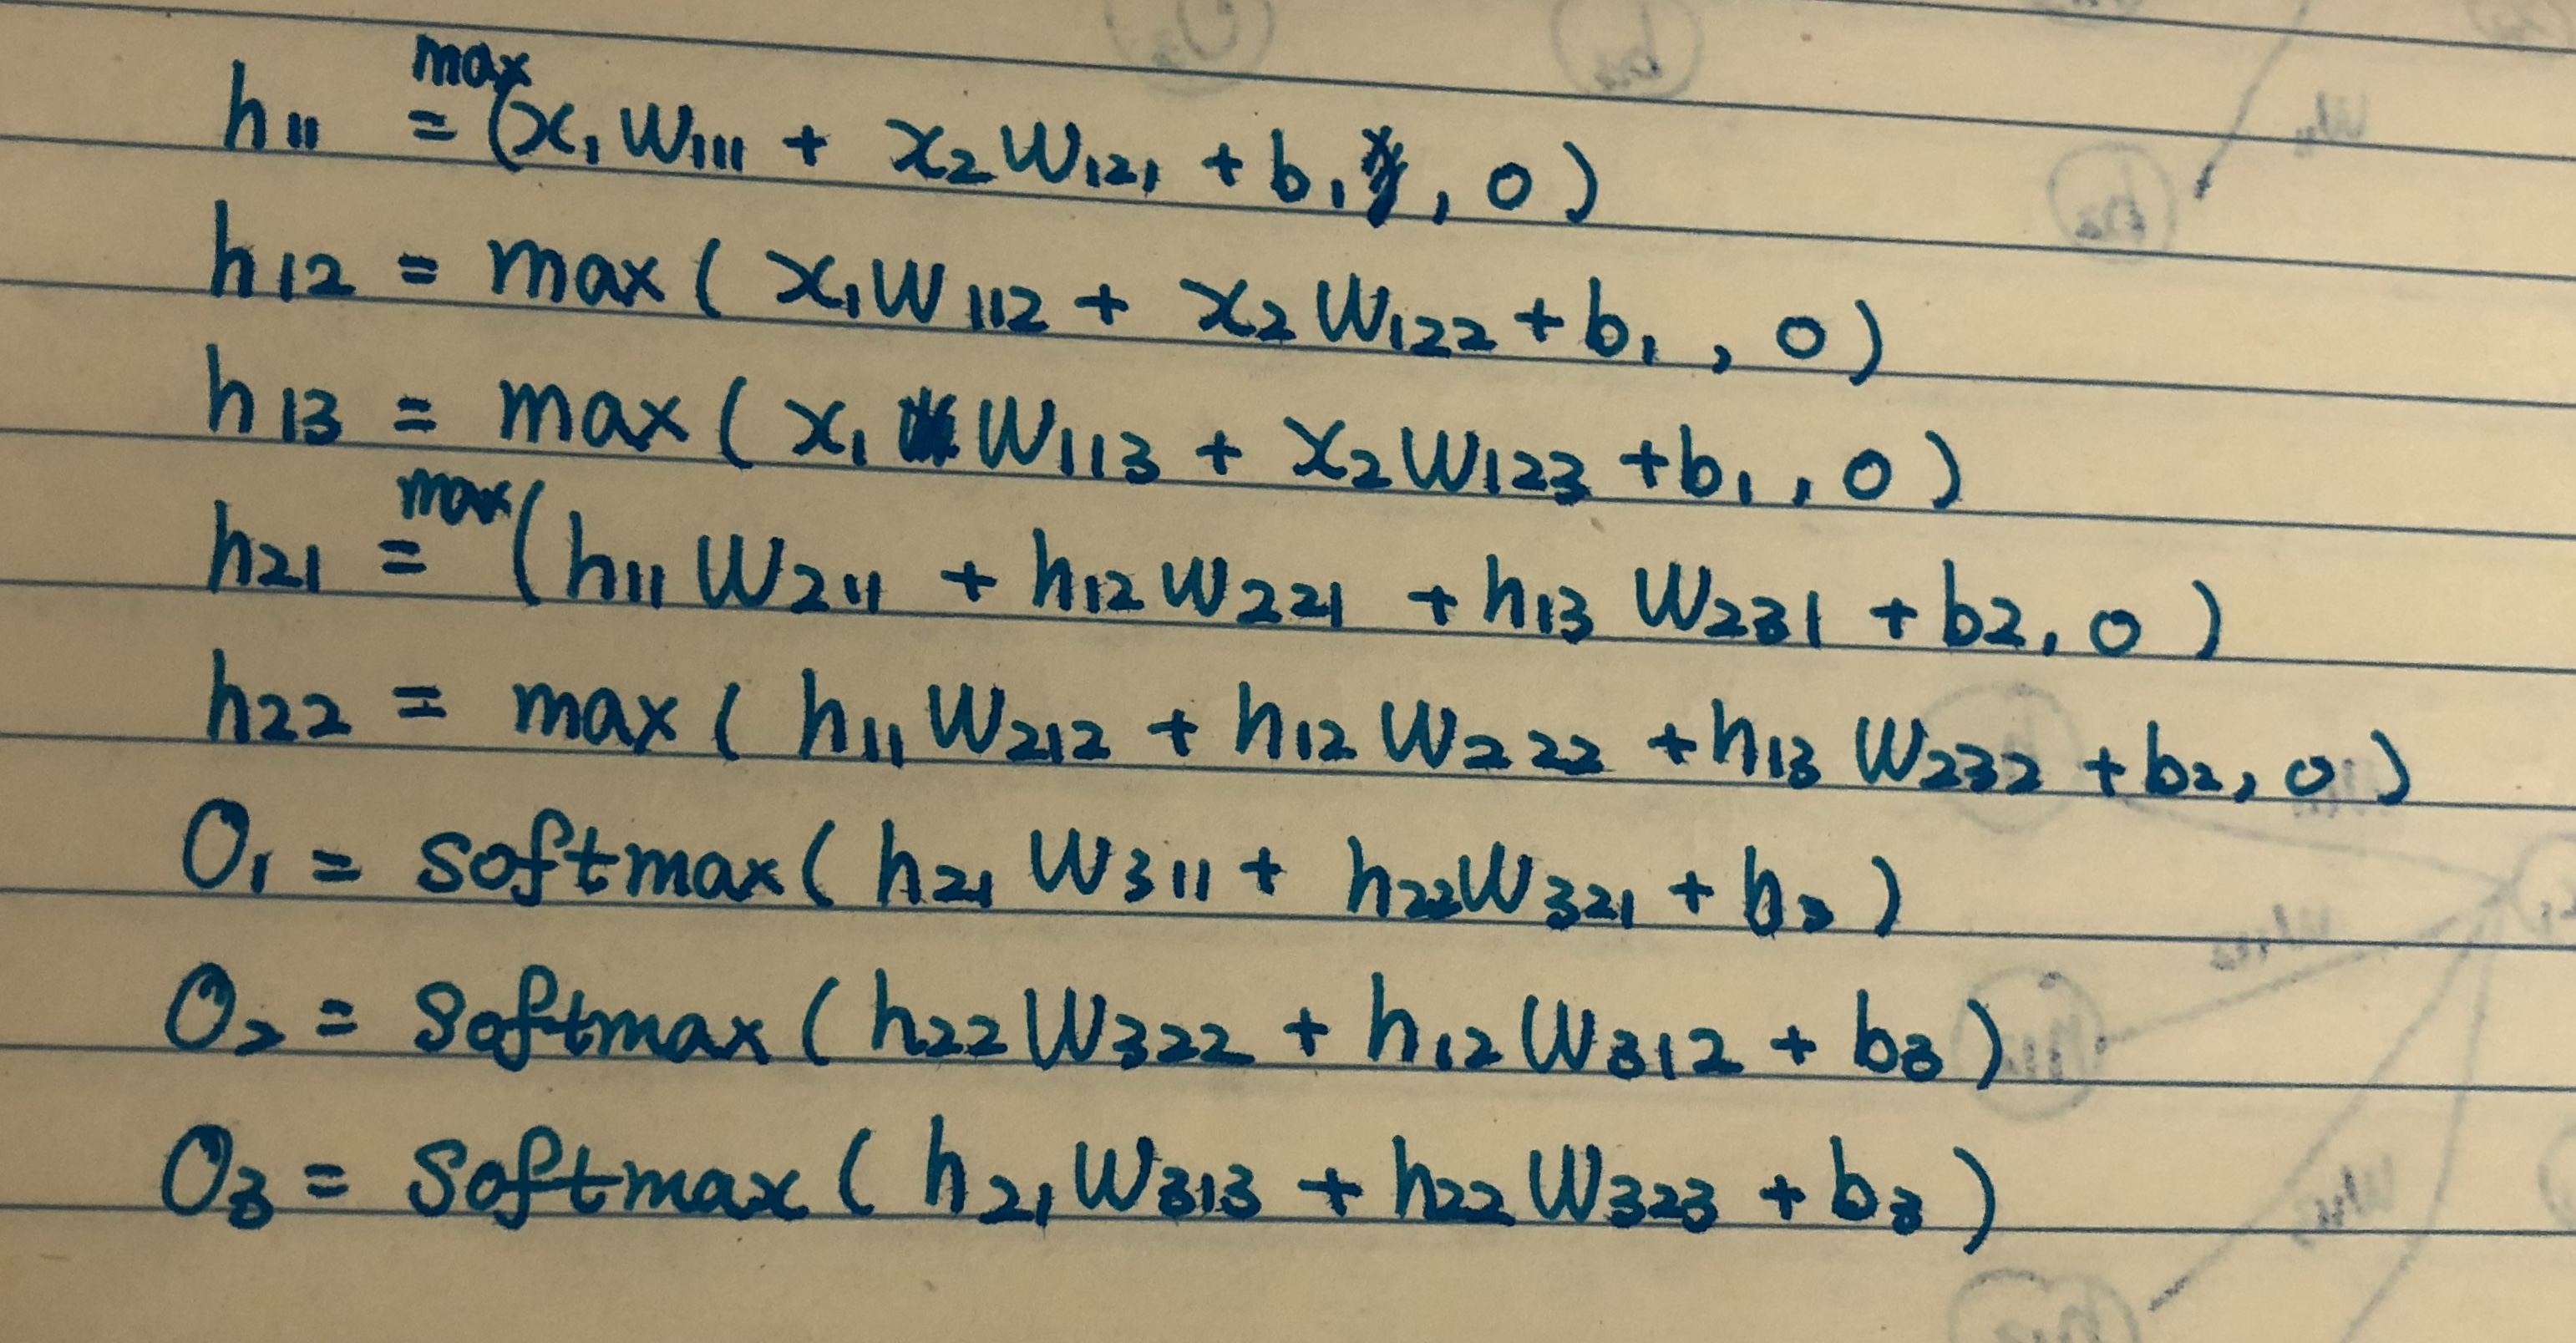 h11 = max(x1 W111 + x2 W121 + b1, 0)
h12 = max( x1 W112 + x2 W122 + b1, 0)
h13 = max( x1 W113 + x2 W123 + b1, 0)
h21 = max(h11 W211 + h12 W221 + h13 W231 + b2, 0)
h22 = max( h11 W212 + h12 W222 + h13 W232 + b2, 0)
O1 = softmax( h21 W311 + h22 W321 + b3 )
O2 = softmax ( h22 W322 + h12 W312 + b3 )
O3 = softmax ( h21 W313 + h22 W323 + b3 )